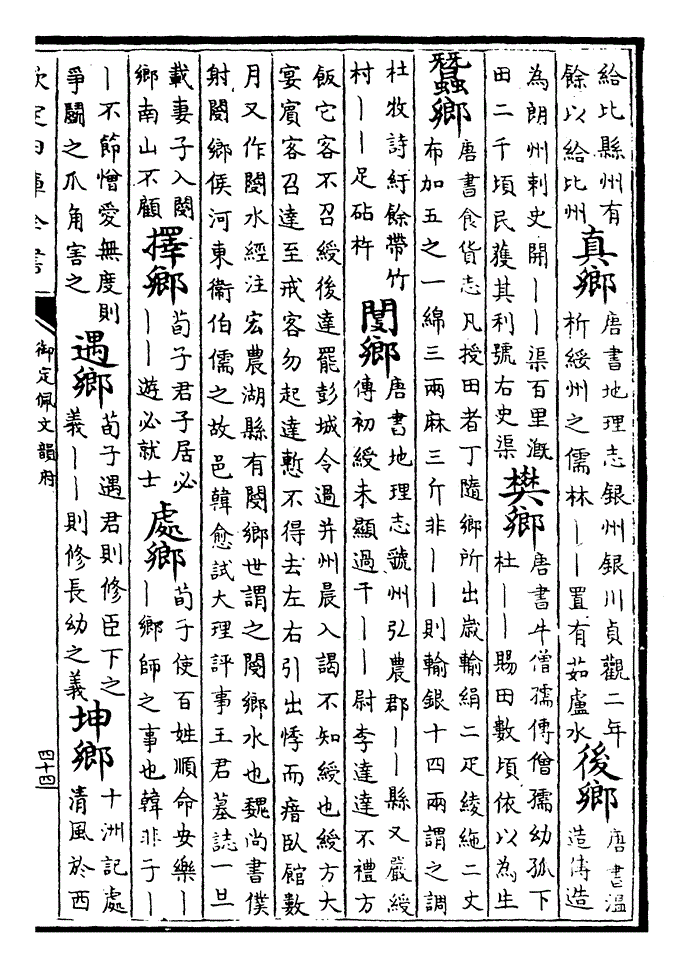 給比縣州有
餘以給比州
真鄉
唐書地理志銀州銀川貞觀二年
析綏州之儒林｜｜置有茹盧水
後鄉
唐書溫
造傳造
為朗州刺史開｜｜渠百里溉
田二千頃民獲其利號右史渠
樊鄉
唐書牛僧孺傳僧孺幼孤下
杜｜｜賜田數頃依以為生
蠶鄉
唐書食貨志凡授田者丁隨鄉所出歲輸絹二疋綾絁二丈
布加五之一綿三兩麻三斤非｜｜則輸銀十四兩謂之調
杜牧詩紆餘帶竹
村｜｜足砧杵
閿鄉
唐書地理志虢州弘農郡｜｜縣又嚴綬
傳初綬未顯過于｜｜尉李達達不禮方
飯它客不召綬後達罷彭城令過并州晨入謁不知綬也綬方大
宴賓客召達至戒客勿起達慙不得去左右引出悸而瘖臥館數
月又作閺水經注宏農湖縣有閿鄉世謂之閿鄉水也魏尚書僕
射閿鄉侯河東衞伯儒之故邑韓愈試大理評事王君墓誌一旦
載妻子入閿
鄉南山不顧
擇鄉
荀子君子居必
｜｜遊必就士
處鄉
荀子使百姓順命安樂｜
｜鄉師之事也韓非子｜
｜不節憎愛無度則
爭鬭之爪角害之
遇鄉
荀子遇君則修臣下之
義｜｜則修長幼之義
坤鄉
十洲記處
清風於西
欽定四庫全書
御定佩文韻府
四十四